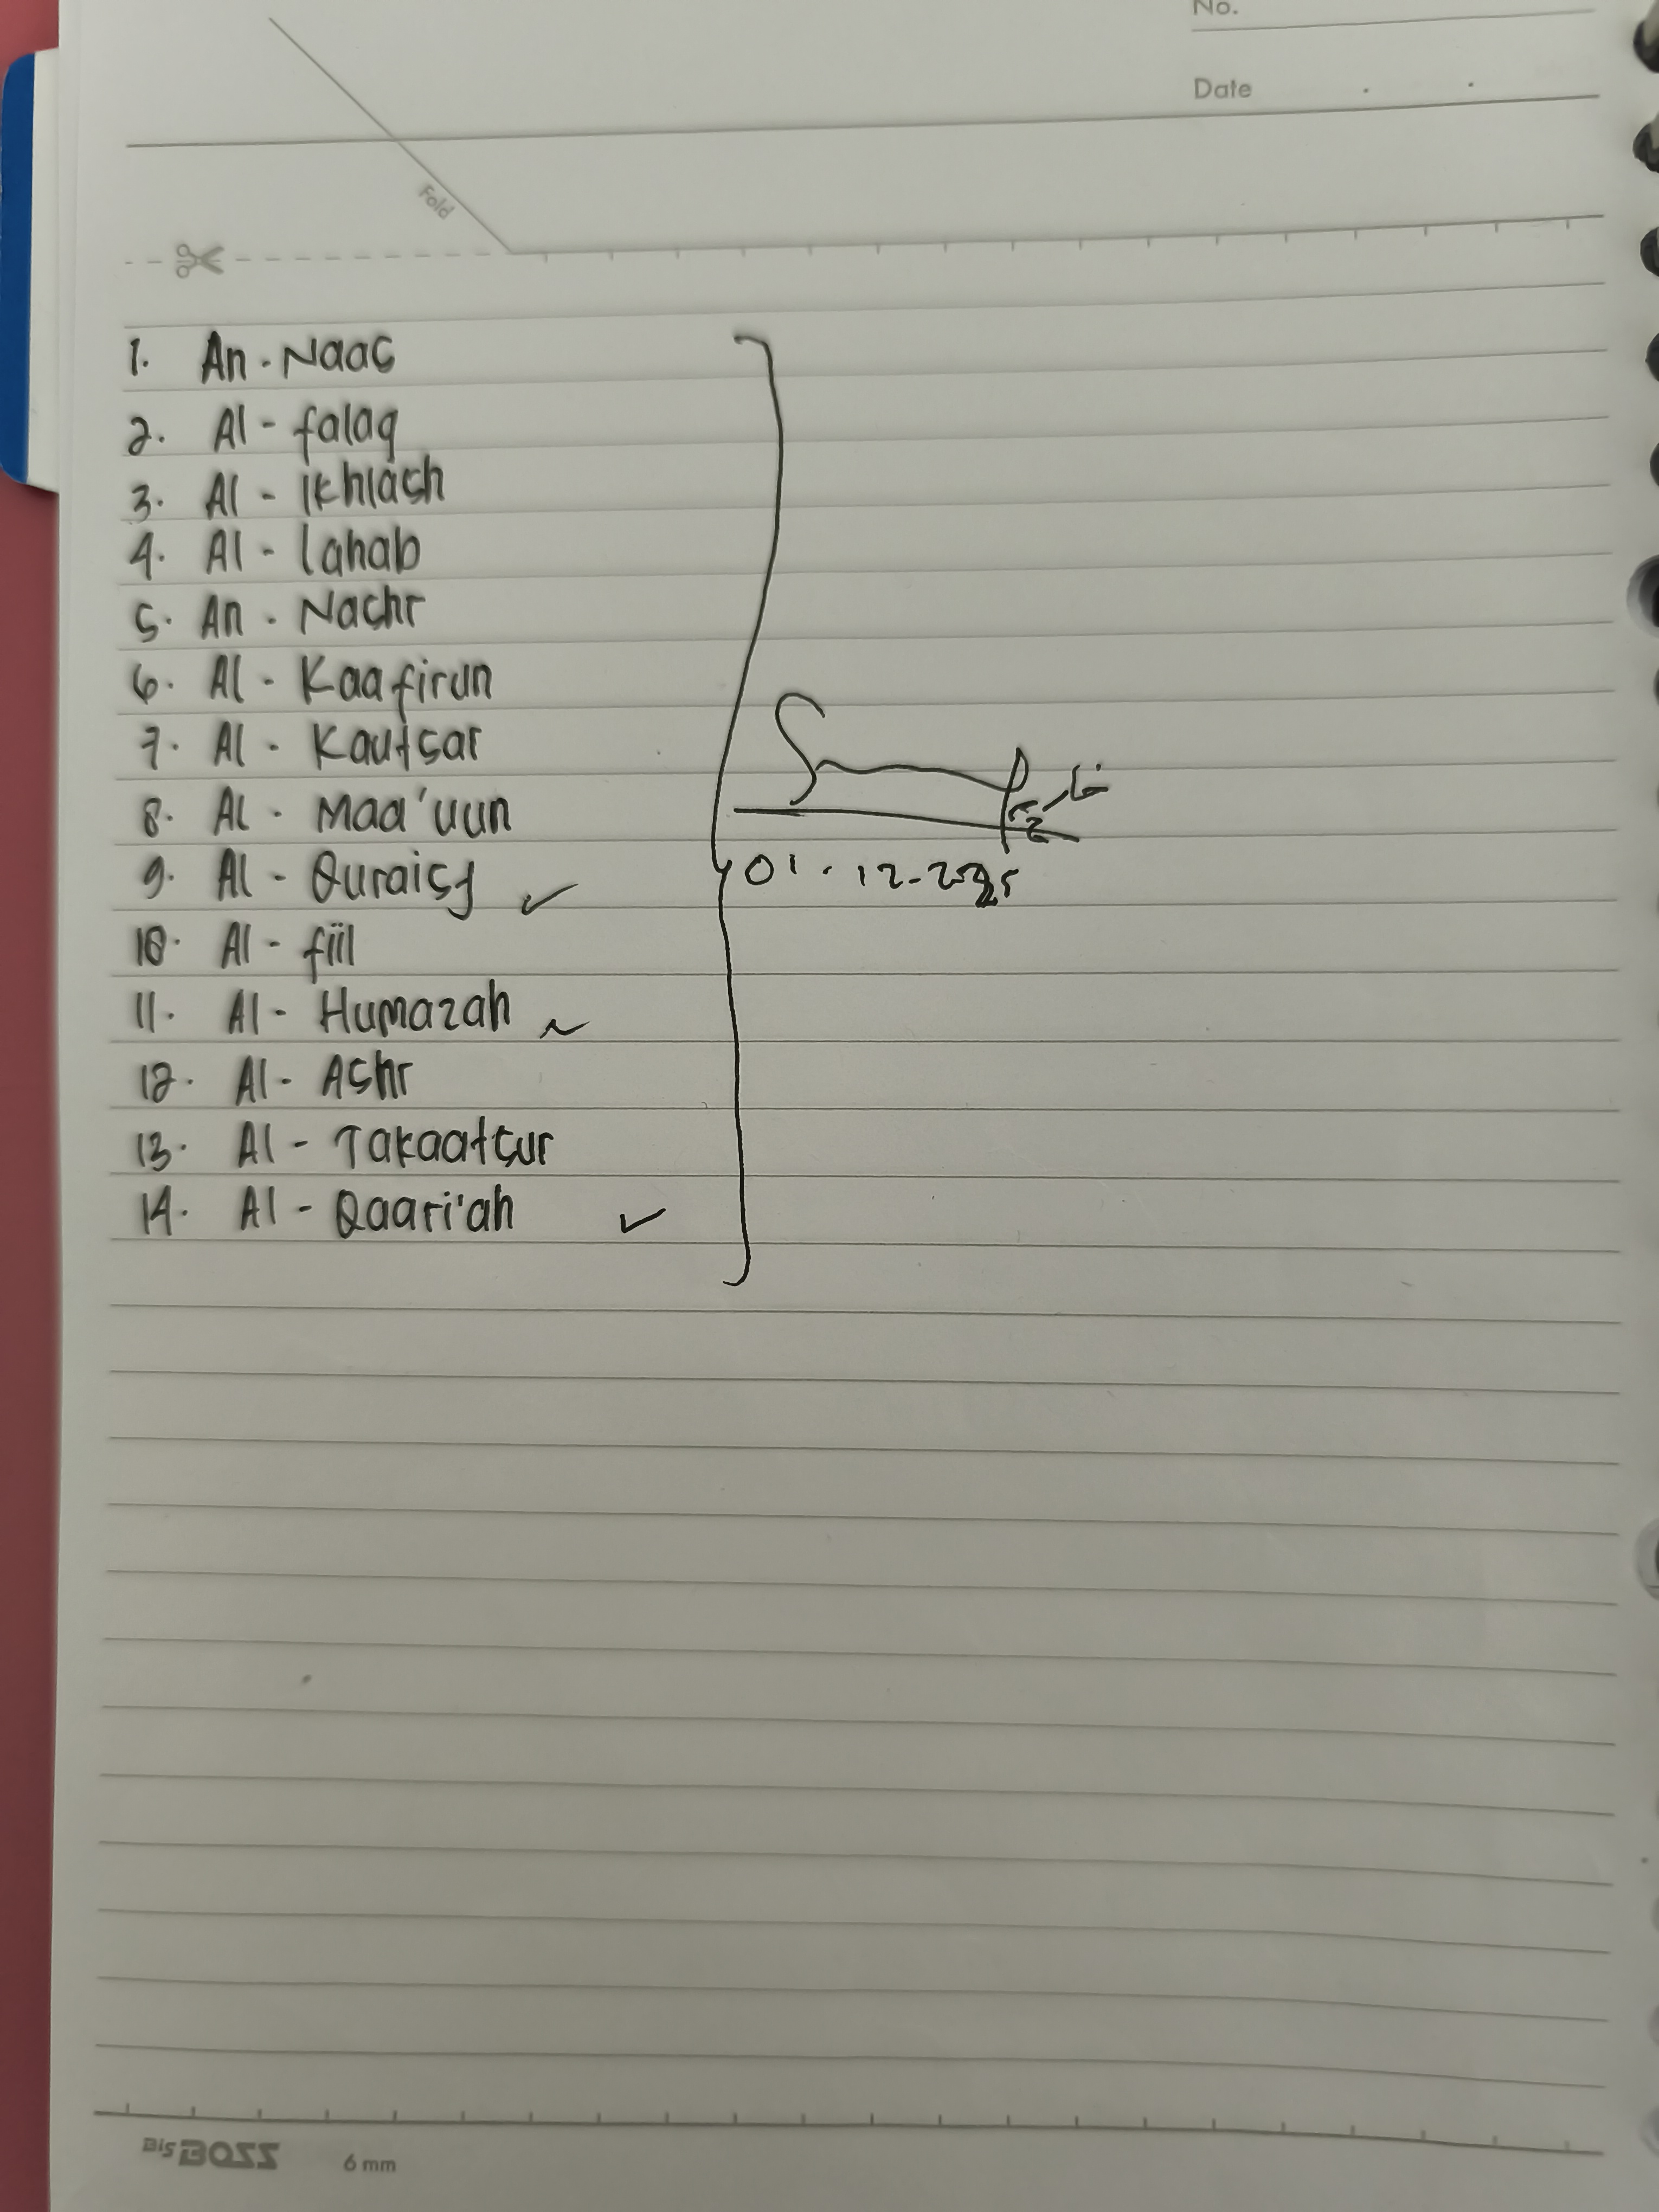 No.
Date
Fold
1. An - Naas
2. Al - falaq
3. Al - Ikhlash
4. Al - lahab
5. An - Nashr
6. Al - Kaafirun
7. Al - Kautsar
8. Al - Maa'uun
9. Al - Quraisy
01 - 12 - 2025
10. Al - fiil
11. Al - Humazah
12. Al - Ashr
13. Al - Takaatsur
14. Al - Qaari'ah
BisBOSS 6 mm